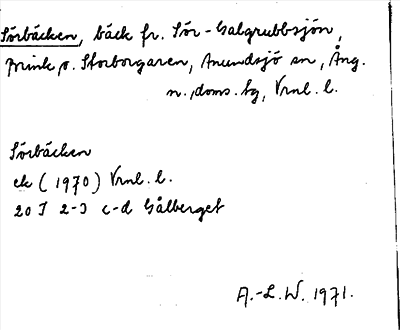 Sörbäcken, bäck fr. Sör-Galgrubbsjön,
Storborgaren, Anundsjö sn, Ång.
n. doms. bg, Vrnl. l.
Sörbäcken
ek (1970) Vrnl. l.
20 I 2-3 c-d Gålberget
A.-L.W. 1971.